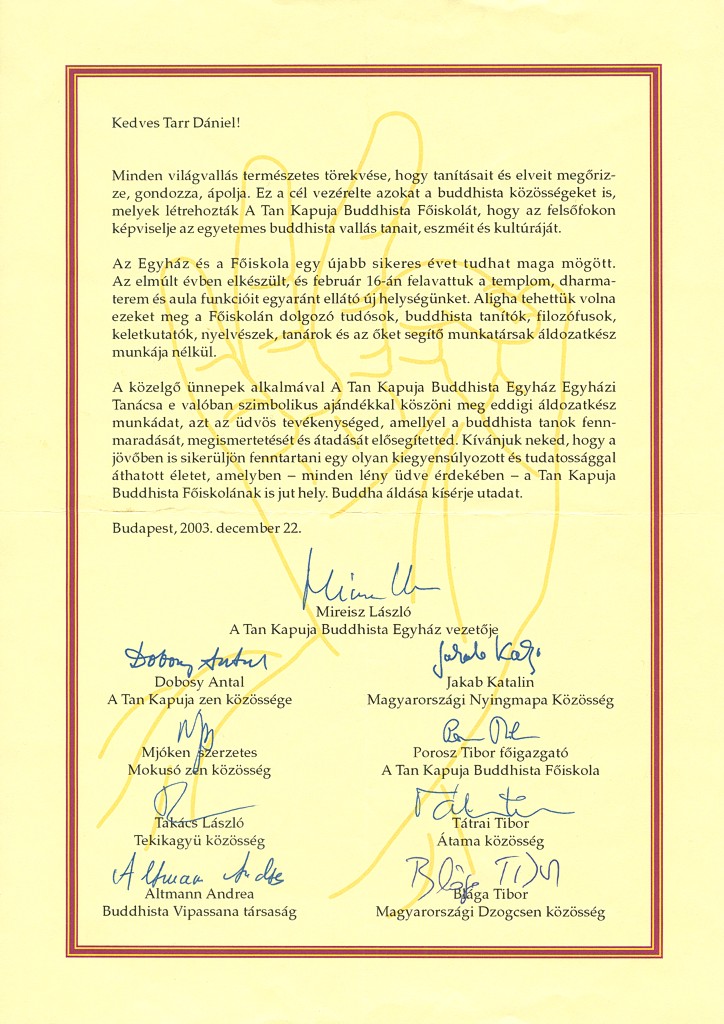 Kedves Tarr Dániel!
Minden világvallás természetes törekvése, hogy tanításait és elveit megőriz-
ze, gondozza, ápolja. Ez a cél vezérelte azokat a buddhista közösségeket is,
melyek létrehozták A Tan Kapuja Buddhista Főiskolát, hogy az felsőfokon
képviselje az egyetemes buddhista vallás tanait, eszméit és kultúráját.
Az Egyház és a Főiskola egy újabb sikeres évet tudhat maga mögött.
Az elmúlt évben elkészült, és február 16-án felavattuk a templom, dharma-
terem és aula funkcióit egyaránt ellátó új helységünket. Aligha tehettük volna
ezeket meg a Főiskolán dolgozó tudósok, buddhista tanítók, filozófusok,
keletkutatók, nyelvészek, tanárok és az őket segítő munkatársak áldozatkész
munkája nélkül.
A közelgő ünnepek alkalmával A Tan Kapuja Buddhista Egyház Egyházi
Tanácsa e valóban szimbolikus ajándékkal köszöni meg eddigi áldozatkész
munkádat, azt az üdvös tevékenységed, amellyel a buddhista tanok fenn-
maradását, megismertetését és átadását elősegítetted. Kívánjuk neked, hogy a
jövőben is sikerüljön fenntartani egy olyan kiegyensúlyozott és tudatossággal
áthatott életet, amelyben – minden lény üdve érdekében – a Tan Kapuja
Buddhista Főiskolának is jut hely. Buddha áldása kísérje utadat.
Budapest, 2003. december 22.
Mireisz László
A Tan Kapuja Buddhista Egyház vezetője
Dobosy Antal
Dobosy Antal
A Tan Kapuja zen közössége
Jakab Kati
Jakab Katalin
Magyarországi Nyingmapa Közösség
Mjóken szerzetes
Mokusó zen közösség
Porosz Tibor főigazgató
A Tan Kapuja Buddhista Főiskola
Takács László
Tekikagyü közösség
Tátrai Tibor
Átama közösség
Altmann Andrea
Altmann Andrea
Buddhista Vipassana társaság
Blága Tibor
Blága Tibor
Magyarországi Dzogcsen közösség